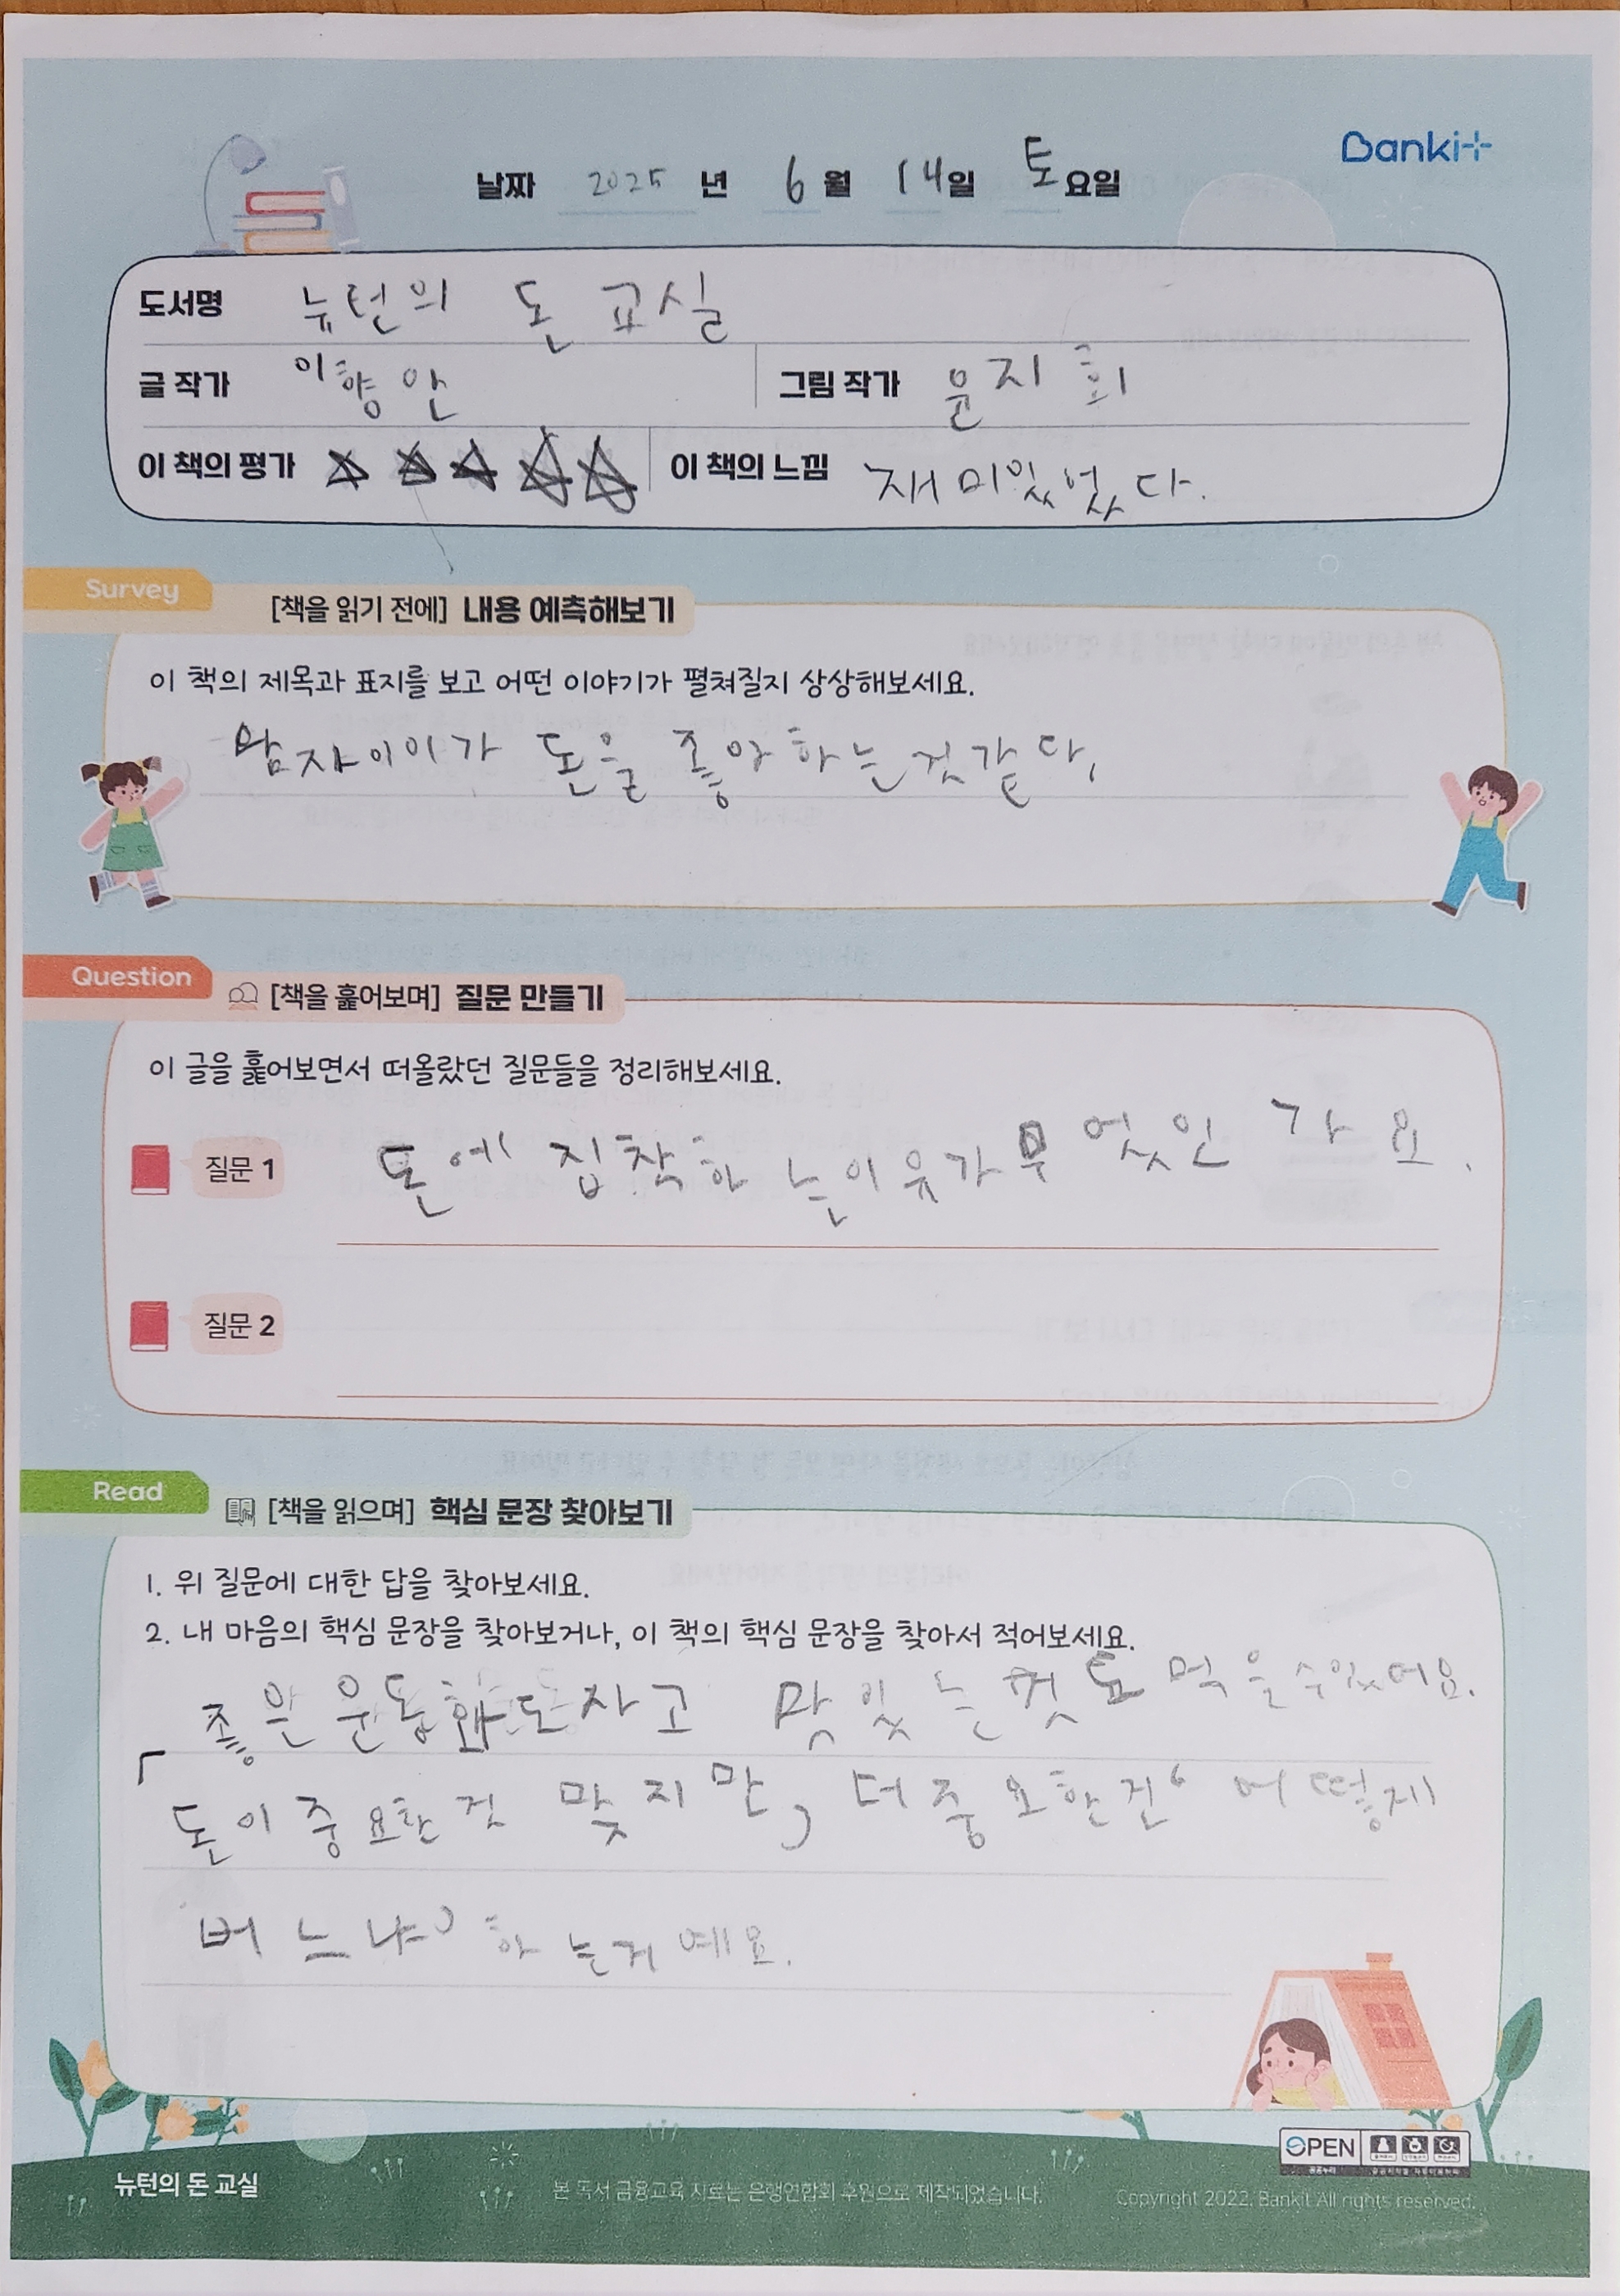 Bankit
날짜 2025 년 6 월 14일 토요일
도서명 뉴턴의 돈 교실
글 작가 이향안 그림 작가 윤지회
이 책의 평가 이 책의 느낌 재미있었다.
Survey
[책을 읽기 전에] 내용 예측해보기
이 책의 제목과 표지를 보고 어떤 이야기가 펼쳐질지 상상해보세요.
남자이이가 돈을 좋아하는것같다.
Question
[책을 훑어보며] 질문 만들기
이 글을 훑어보면서 떠올랐던 질문들을 정리해보세요.
질문 1 돈에 집착하는이유가무엇인가요.
질문 2
Read
[책을 읽으며] 핵심 문장 찾아보기
1. 위 질문에 대한 답을 찾아보세요.
2. 내 마음의 핵심 문장을 찾아보거나, 이 책의 핵심 문장을 찾아서 적어보세요.
좋은 운동화도사고 맛있는것도 먹을수있데요.
「돈이중요한것 맞지만, 더중요한건‘어떻게
버느냐’하는거예요.
OPEN
뉴턴의 돈 교실
본 독서 금융교육 자료는 은행연합회 후원으로 제작되었습니다.
Copyright 2022. Bankit All rights reserved.